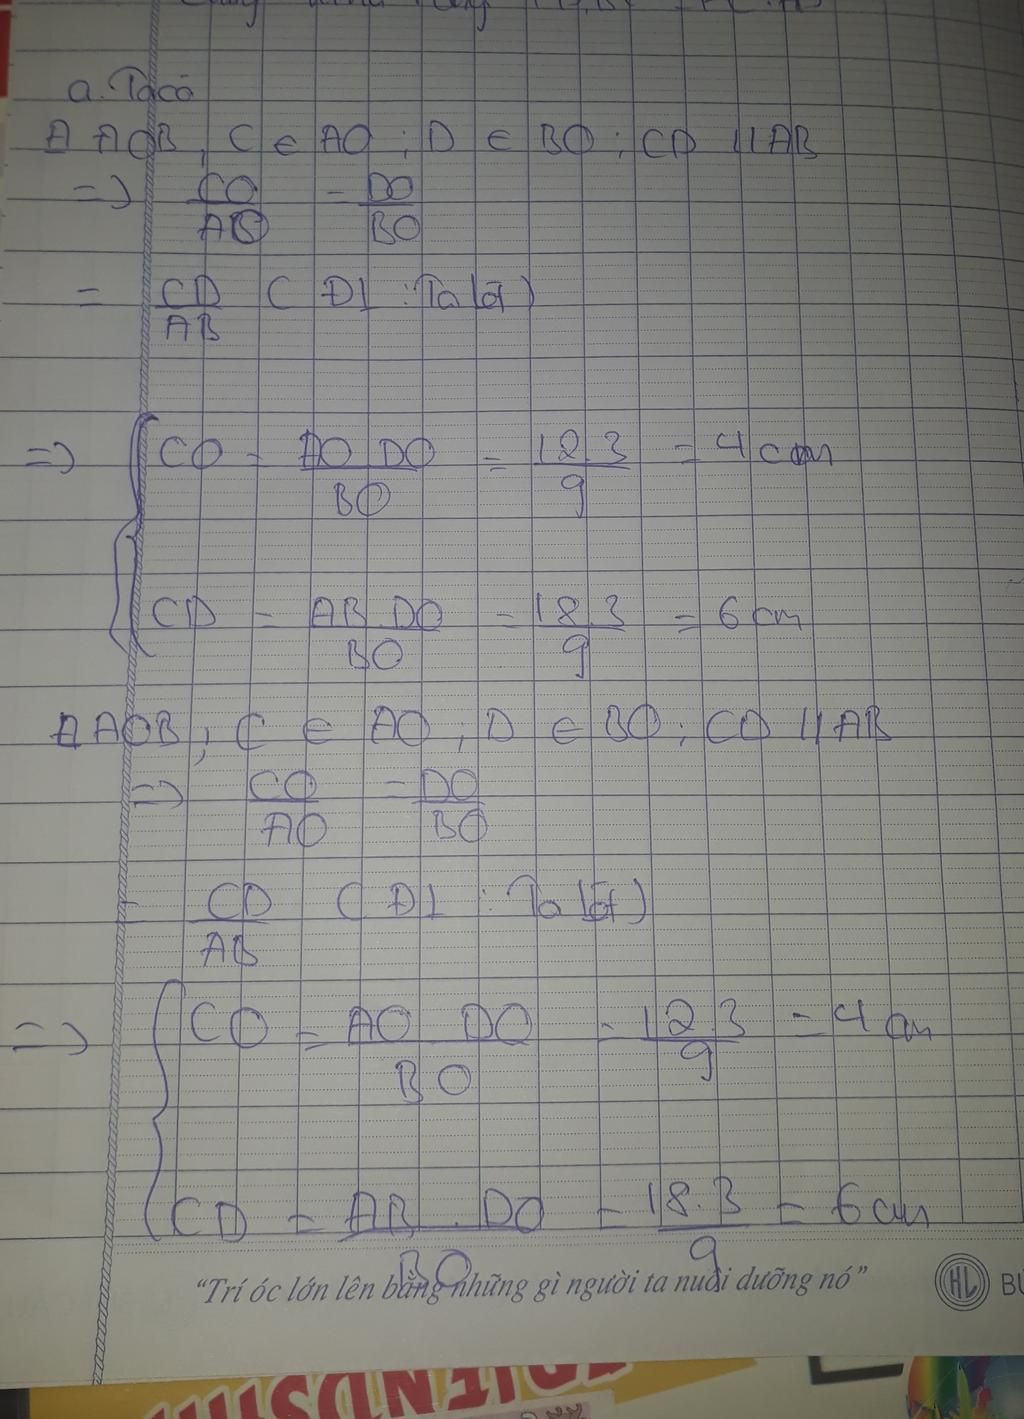 a. Ta có
Δ AOB, C ∈ AO ; D ∈ BO ; CD // AB
=> CO/AO = DO/BO
= CD/AB ( ĐL : Ta lét )
=> { CO = AO DO/BO = 12.3/9 = 4 cm
CD = AB.DO/BO = 18.3/9 = 6 cm
Δ AOB ; C ∈ AO ; D ∈ BO ; CD // AB
=> CO/AO = DO/BO
= CD/AB ( ĐL : Ta lét )
=> { CO = AO DO/BO = 12.3/9 = 4 cm
CD = AB . DO/BO = 18.3/9 = 6 cm
"Trí óc lớn lên bằng những gì người ta nuôi dưỡng nó"
HL